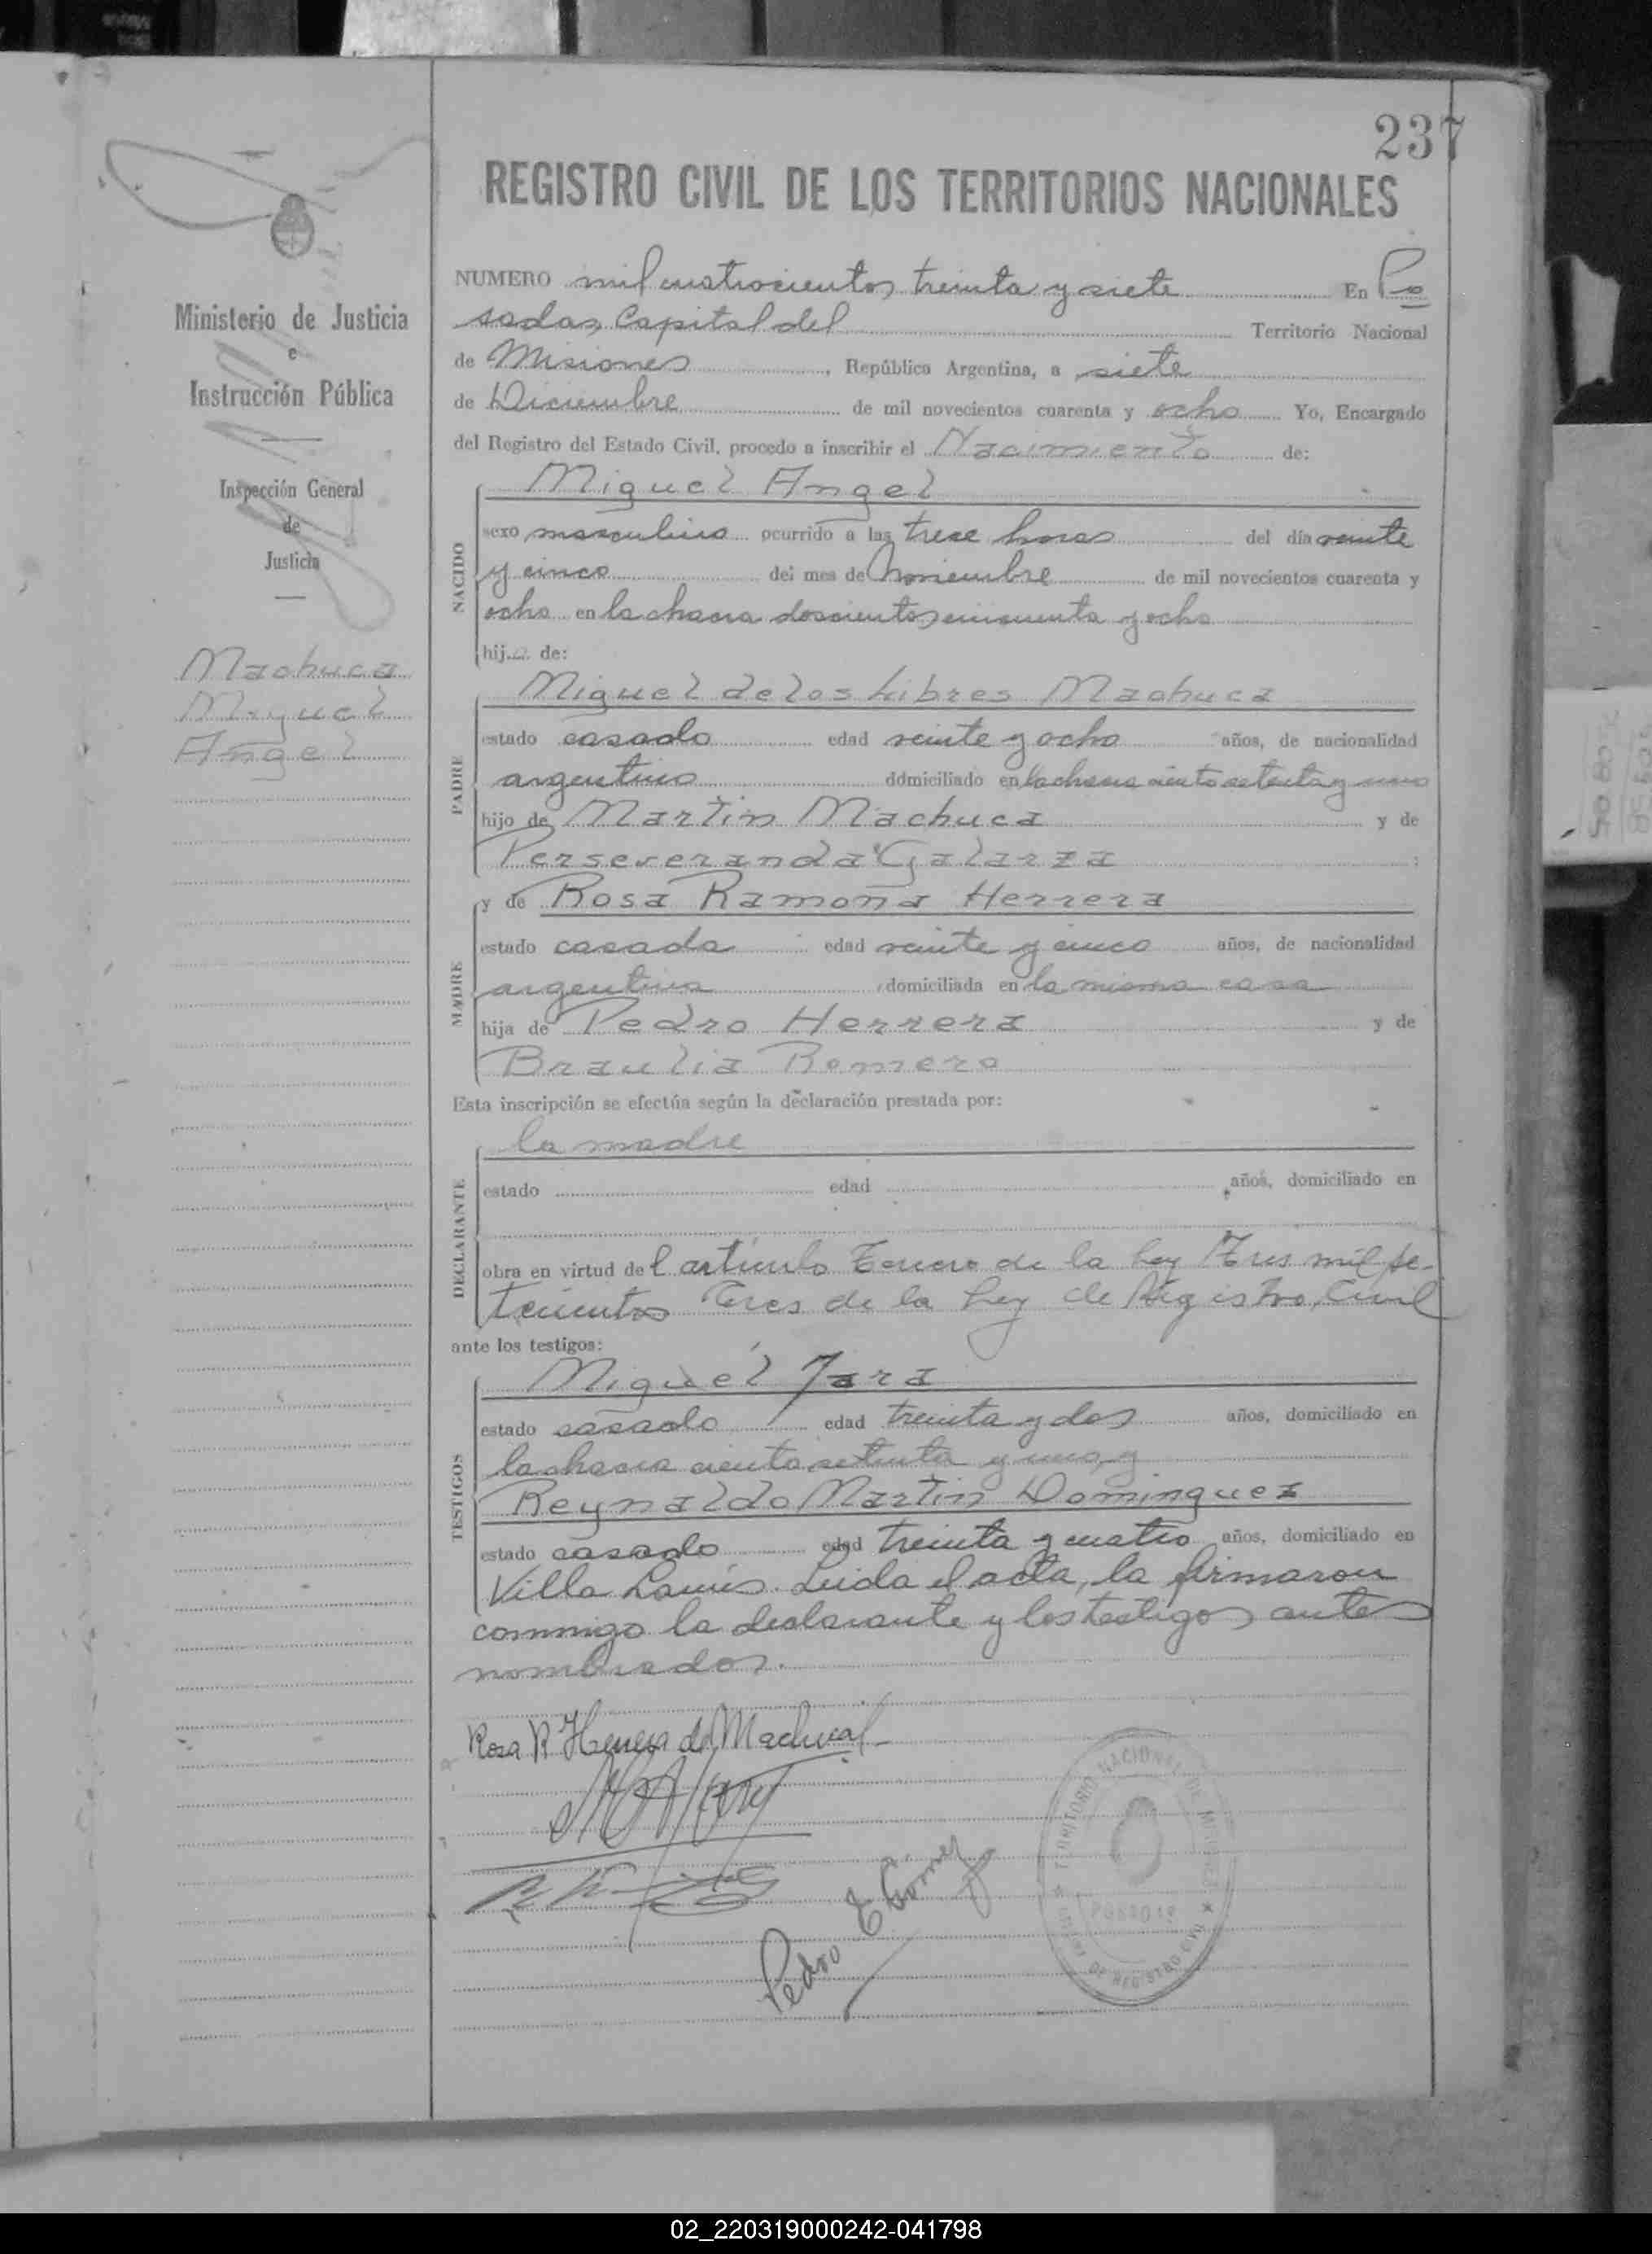 237
REGISTRO CIVIL DE LOS TERRITORIOS NACIONALES
Ministerio de Justicia
e
Instrucción Pública
Inspección General
de
Justicia
Machuca
Miguel
Angel
NUMERO mil cuatrocientos treinta y siete En Po
sadas, Capital del Territorio Nacional
de Misiones, República Argentina, a siete
de Diciembre de mil novecientos cuarenta y ocho Yo, Encargado
del Registro del Estado Civil, procedo a inscribir el Nacimiento de:
NACIDO
Miguel Angel
sexo masculino ocurrido a las trece horas del día veinte
y cinco del mes de Noviembre de mil novecientos cuarenta y
ocho en la chacra doscientos cincuenta y ocho
hijo de:
PADRE
Miguel de los Libres Machuca
estado casado edad veinte y ocho años, de nacionalidad
argentino domiciliado en la chacra ciento setenta y uno
hijo de Martin Machuca y de
Perseveranda Galarza :
MADRE
y de Rosa Ramona Herrera
estado casada edad veinte y cinco años, de nacionalidad
argentina domiciliada en la misma casa
hija de Pedro Herrera y de
Braulia Romero
Esta inscripción se efectúa según la declaración prestada por:
DECLARANTE
la madre
estado edad años, domiciliado en
obra en virtud del artículo Tercero de la Ley Tres mil se-
tecientos Tres de la Ley de Registro Civil
ante los testigos:
TESTIGOS
Miguel Jara
estado casado edad treinta y dos años, domiciliado en
la chacra ciento setenta y uno, y
Reynaldo Martin Dominguez
estado casado edad treinta y cuatro años, domiciliado en
Villa Lanús. Leida el acta, la firmaron
conmigo la declarante y los testigos antes
nombrados.
Rosa R Herrera de Machuca
Pedro E Gómez
TERRITORIO NACIONAL DE MISIONES
POSADAS
DE REGISTRO CIVIL
02_220319000242-041798